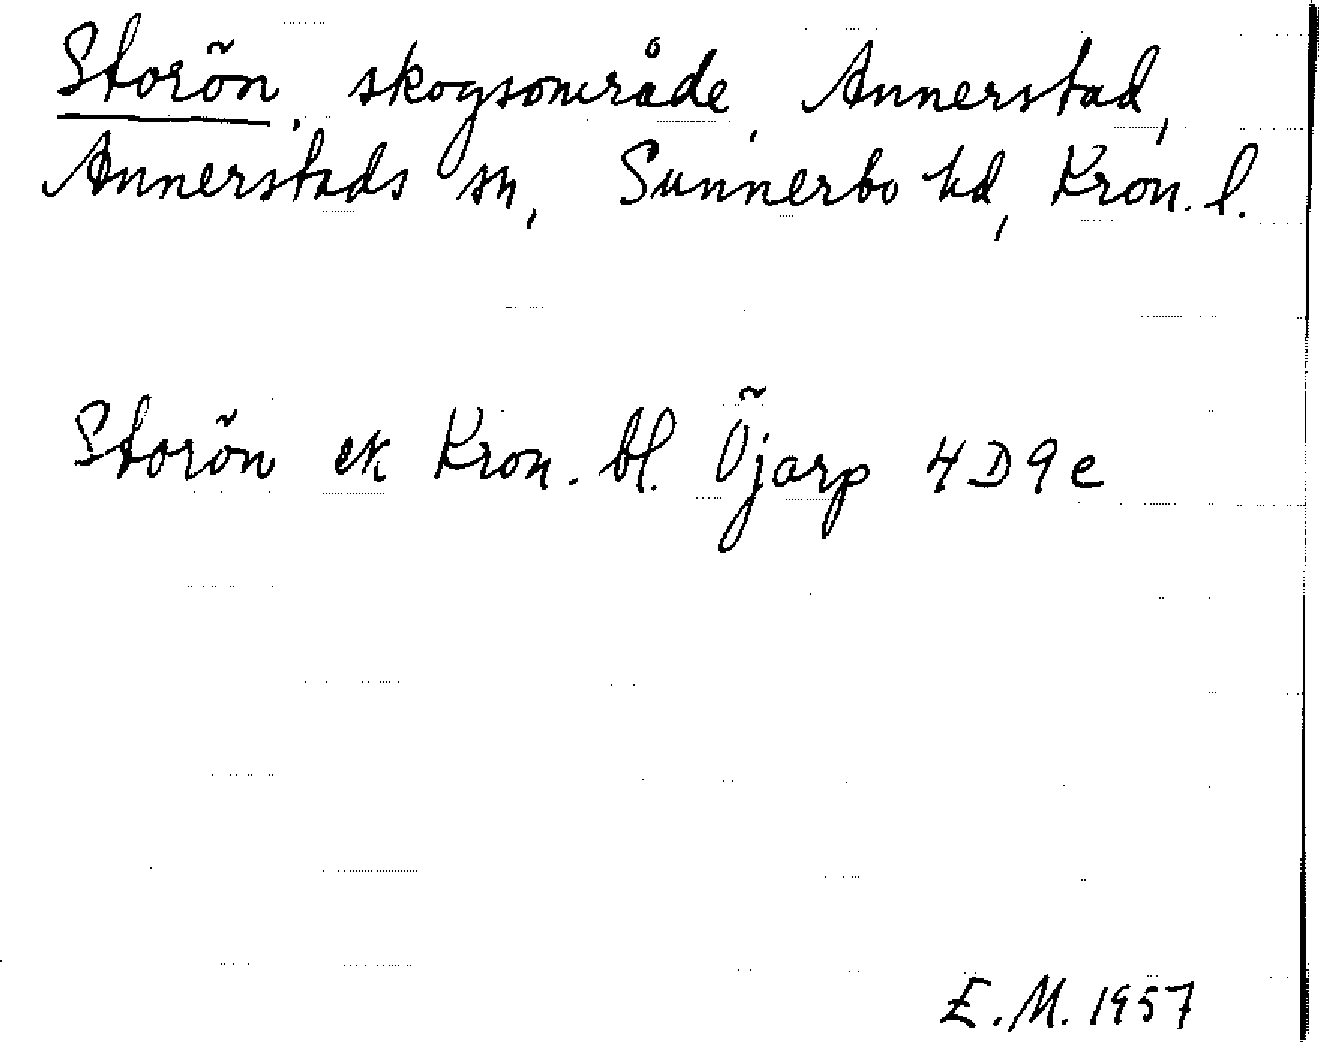 Storön, skogsområde, Annerstad,
Annerstads sn, Sunnerbo hd, Kron. l.
Storön ek Kron. bl. Öjarp 4D9e
E.M. 1957